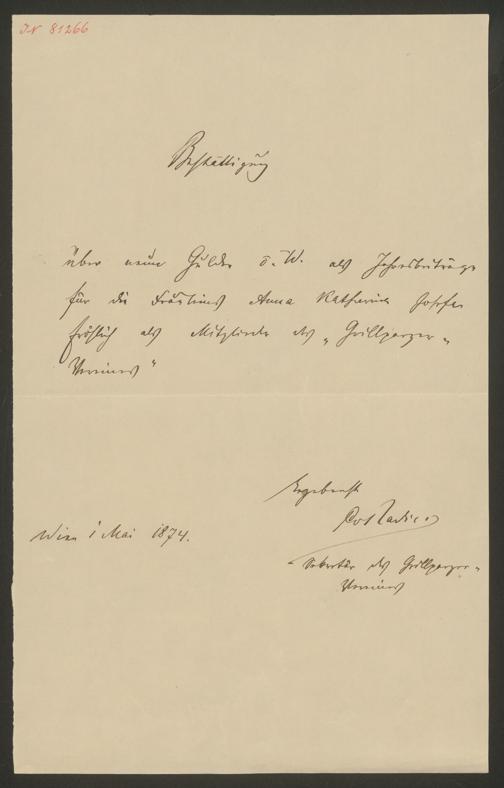 IN 81266
Bestättigung
über neun Gulden ö. W. als Jahresbeiträge
für die Fräuleins Anna Katharina Josefa
Fröhlich als Mitglieder des „Grillparzer-
Vereines"
Ergebenst
Wien 1 Mai 1874.
Sekretär des Grillparzer-
Vereines